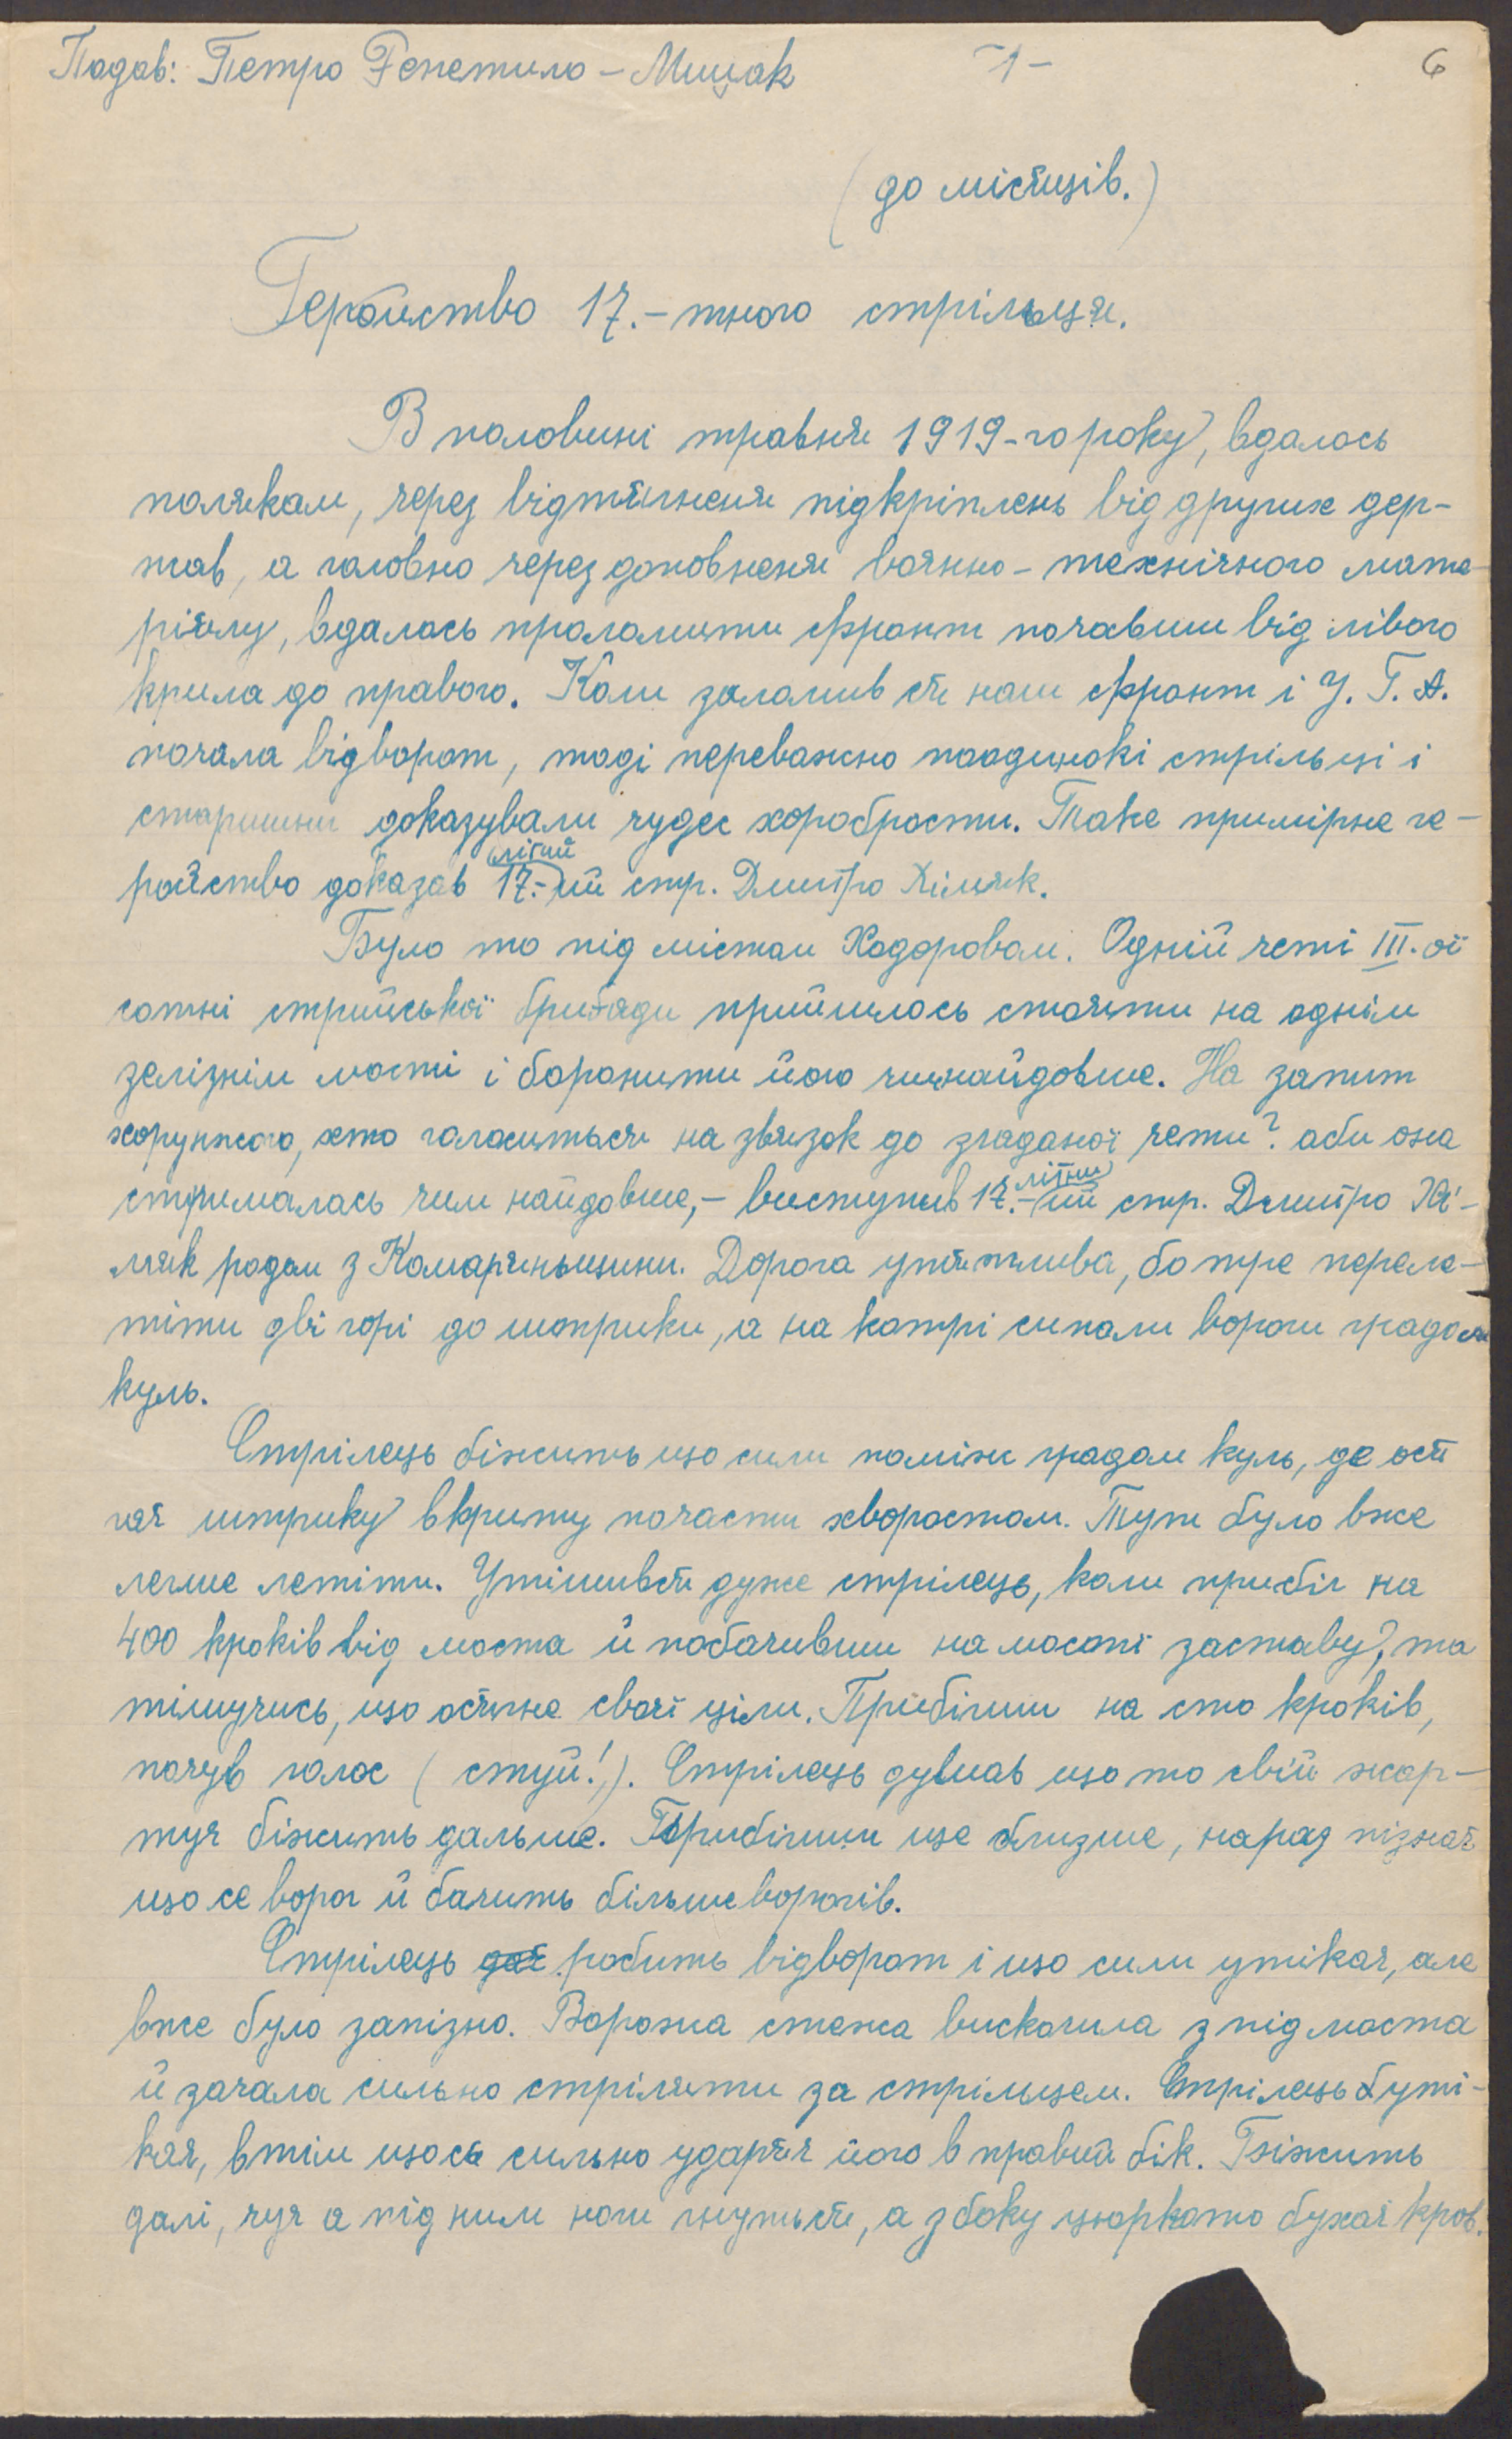 Подав: Петро Репетило – Мицак –1– 6
(до місяців.)
Геройство 17.-тного стрільця.
В половині травня 1919-го року, вдалось
полякам, через відтягненя підкріплень від других дер-
жав, а головно через доповненя воянно-технічного мате-
ріялу, вдалось проломити фронт почавши від лівого
крила до правого. Коли заломив ся наш фронт і У. Г. А.
почала відворот, тоді переважно поодинокі стрільці і
старшини доказували чудес хоробрости. Таке примірне ге-
ройство доказав 17.-літний стр. Дмитро Хімяк.
Було то під містом Ходоровом. Одній четі III.-ої
сотні стрийської бригади прийшлось стояти на однім
зелізнім мості і боронити його чимнайдовше. На запит
хорунжого, хто голоситься на звязок до згаданої чети? аби она
стрималась чим найдовше,– виступив 17.-літний стр. Дмитро Хі-
мяк родом з Комаряньщини. Дорога утяжлива, бо тре переле-
тіти дві горі до штрики, а на котрі сипали вороги градом
куль.
Стрілець біжить що сили поміж градом куль, де ося
гає штрику вкриту почасти хворостом. Тут було вже
легше летіти. Утішився дуже стрілець, коли прибіг на
400 кроків від моста й побачивши на мості заставу, та
тішучись, що осягне своєї ціли. Прибігши на сто кроків,
почув голос (стуй!). Стрілець думав що то свій жар-
тує біжить дальше. Прибігши ще близше, нараз пізнає
що се ворог й бачить більше ворогів.
Стрілець робить відворот і що сили утікає, але
вже було запізно. Ворожа стежа вискочила з під моста
й зачала сильно стріляти за стрільцем. Стрілець уті-
кає, втім щось сильно ударяє його в правий бік. Біжить
далі, чує а під ним ноги гнуться, а з боку цюркото бухає кров.